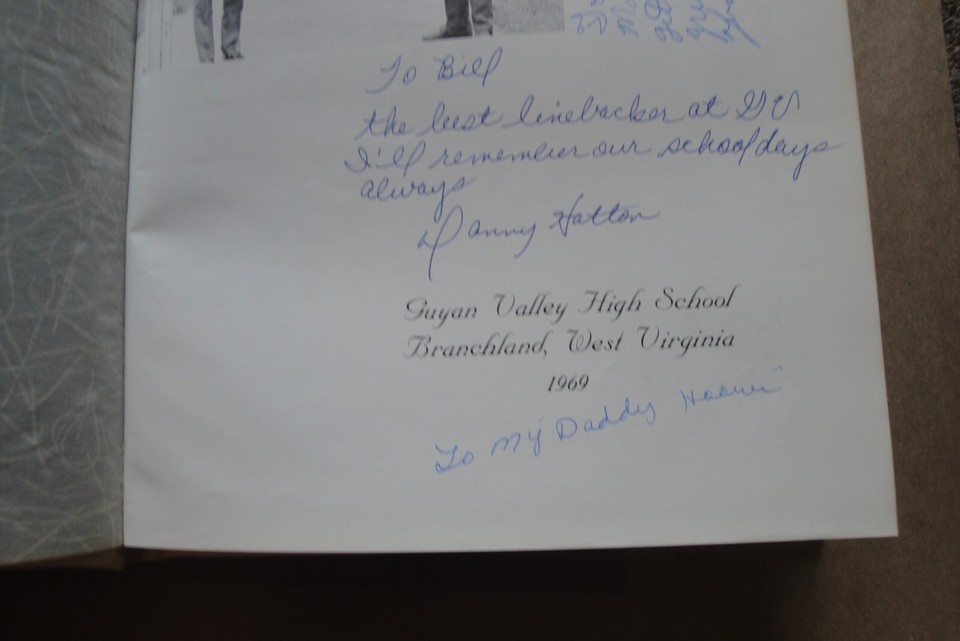 To Bill
the best linebacker at GV
I'll remember our school days
always
Danny Hatton
Guyan Valley High School
Branchland, West Virginia
1969
To My Daddy